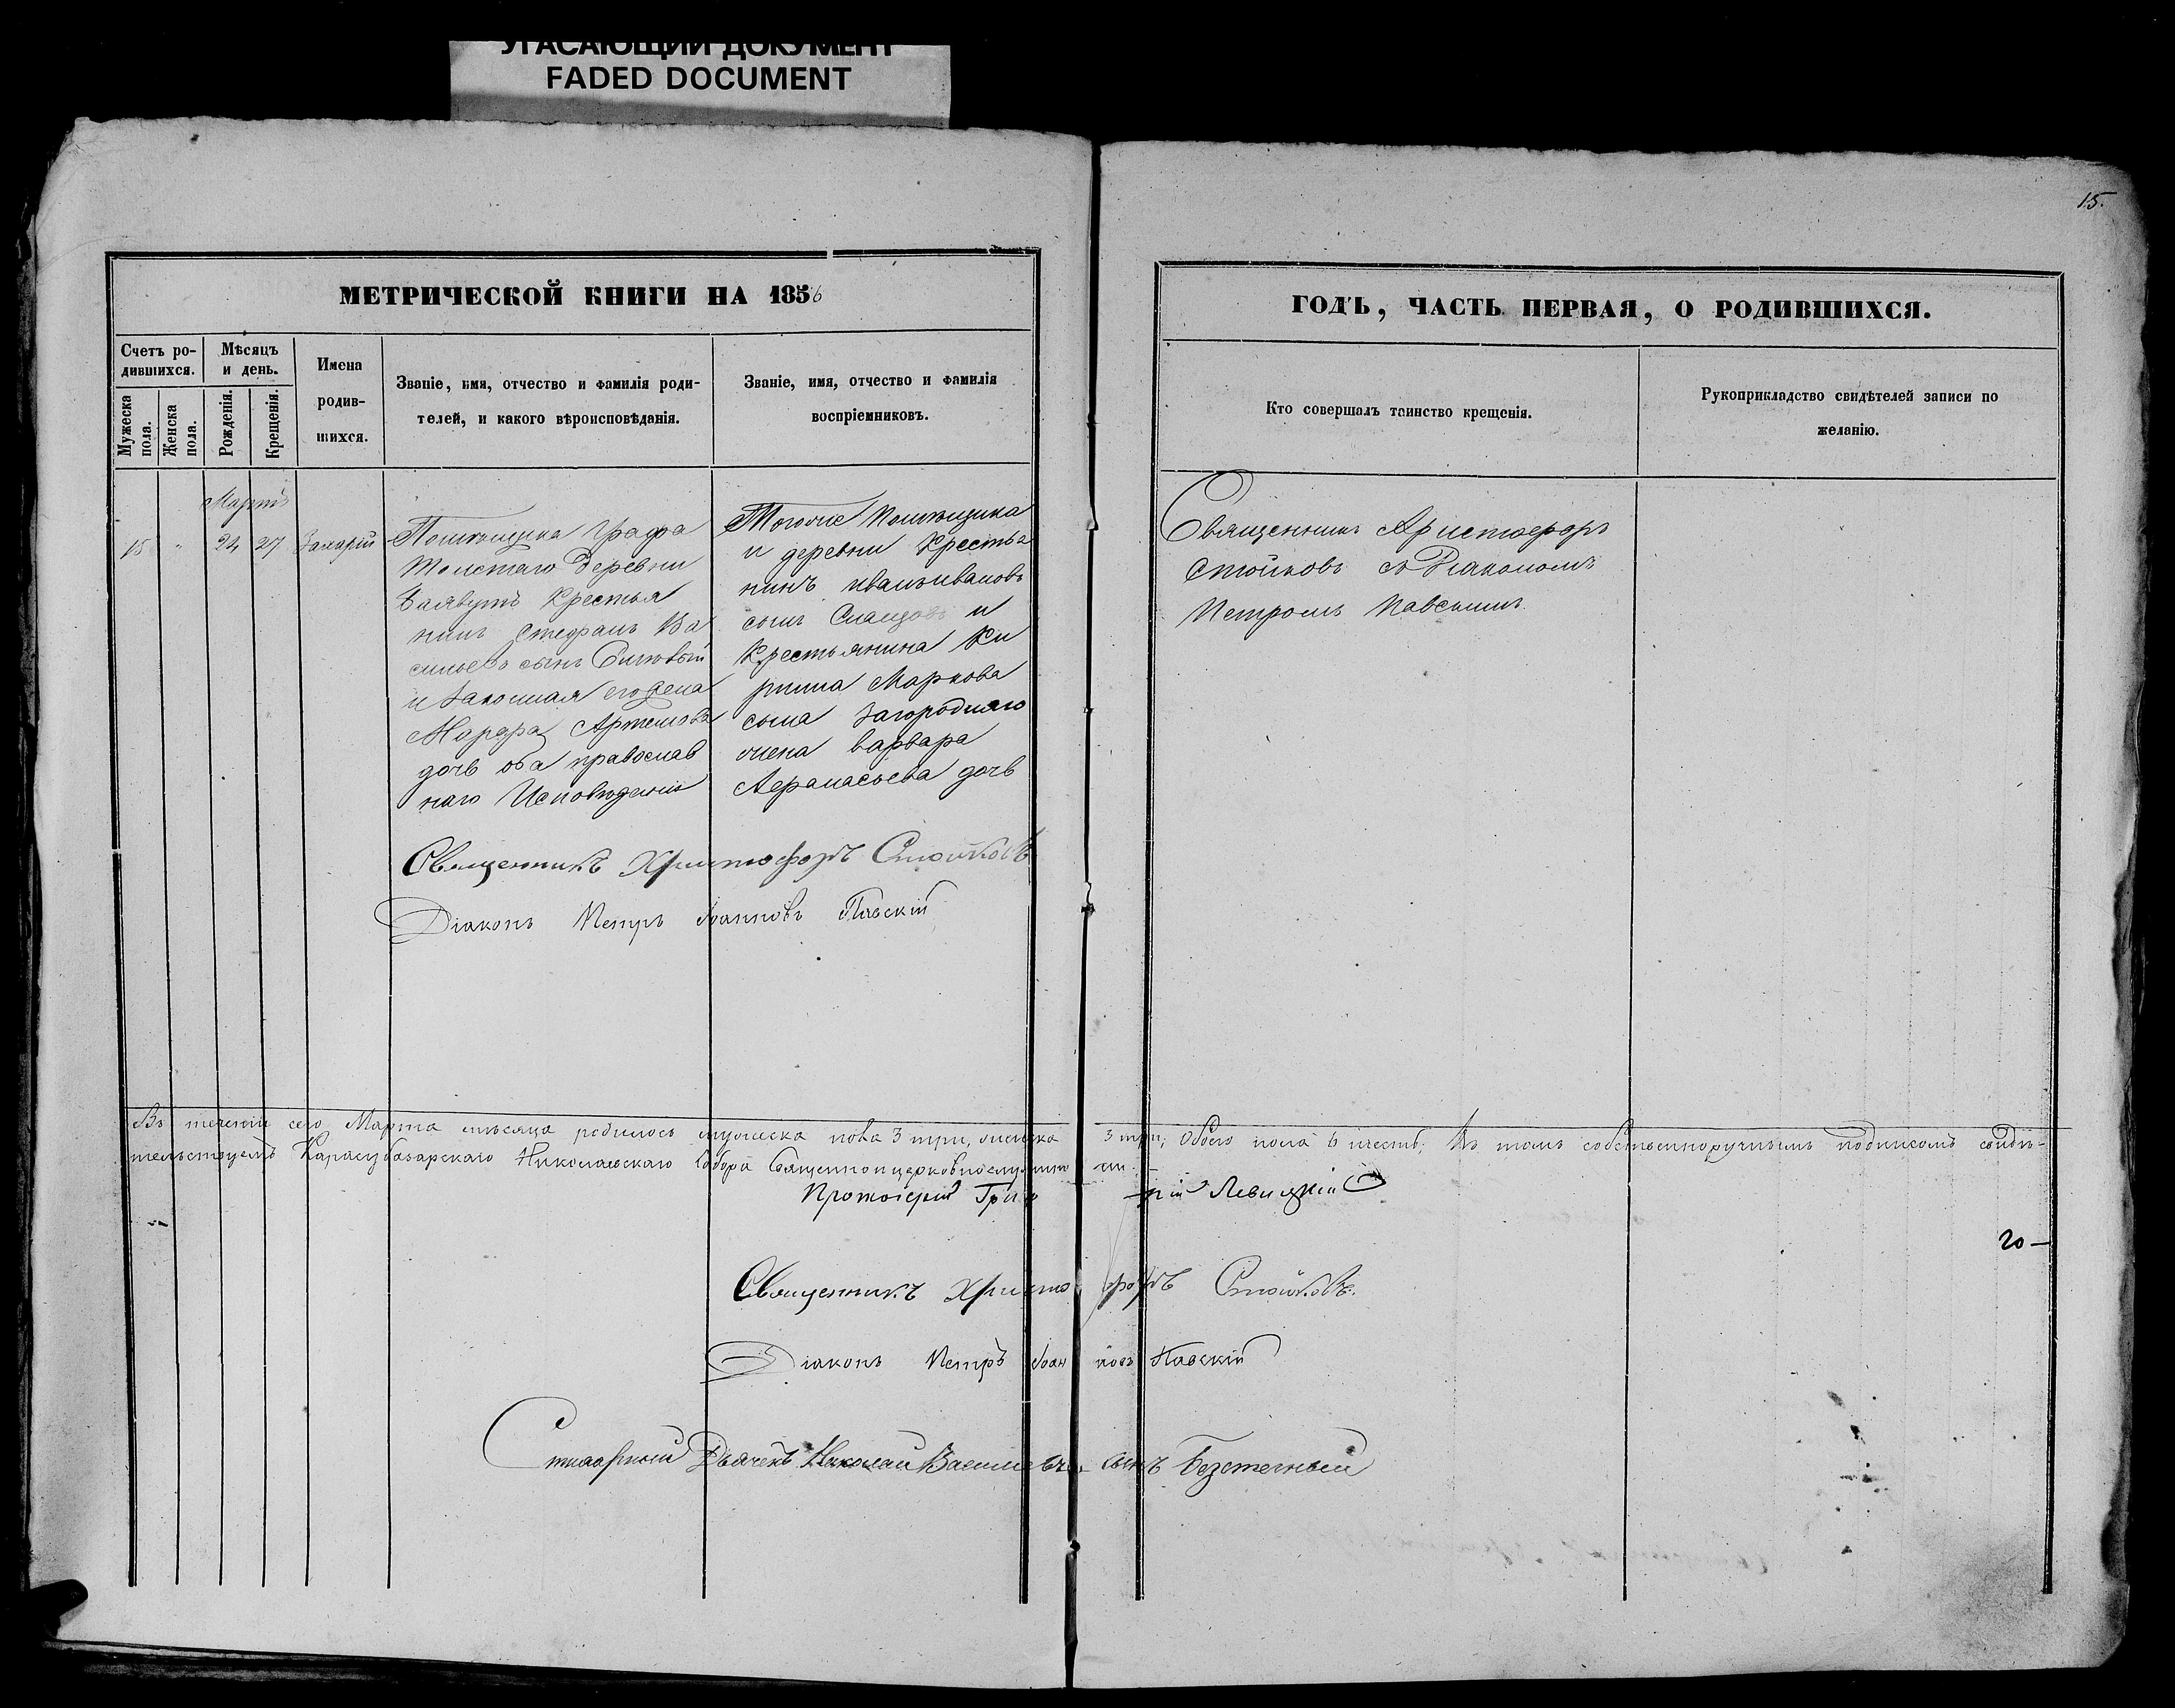 УГАСАЮЩИЙ ДОКУМЕНТ
FADED DOCUMENT
15.
МЕТРИЧЕСКОЙ КНИГИ НА 1856
Счетъ ро-
дившихся.
Мужеска
пола.
Женска
пола.
Мѣсяцъ
и день.
Рожденія.
Крещенія.
Имена
родив-
шихся.
Званіе, имя, отчество и фамилія роди-
телей, и какого вѣроисповѣданія.
Званіе, имя, отчество и фамилія
воспріемниковъ.
Мартъ
15 " 24 27 Захарій
Помѣщика Графа
Толстаго Деревни
крестья
нинъ Стефанъ Ва
сильевъ сынъ
и законная его жена
Марфа Артемова
дочь оба православ
наго Исповѣданія
Тогоже Помѣщика
и деревни Крестья
нинъ Иванъ Ивановъ
сынъ и
Крестьянина Ки
рила Маркова
сына Загороднаго
жена Варвара
Афанасьева дочь
Священникъ Христофоръ Стойковъ
Діаконъ Петръ Іоанновъ Павскій
ГОДЪ, ЧАСТЬ ПЕРВАЯ, О РОДИВШИХСЯ.
Кто совершалъ таинство крещенія.
Рукоприкладство свидѣтелей записи по
желанію.
Священникъ Христофоръ
Стойковъ съ Діакономъ
Петромъ Павскимъ
Въ теченіи сего Марта мѣсяца родилось мужеска пола 3 три, женска 3 три; Обоего пола 6 шесть; Въ томъ собственноручнымъ подписомъ свидѣ-
тельствуемъ Карасубазарскаго Николаевскаго Собора Священно и церковнослужители.
Протоіерей Левицкій
20 —
Священникъ Христофоръ Стойковъ.
Діаконъ Петръ Іоанновъ Павскій
Стихарный Дьячекъ Николай Васильевъ сынъ Безстечный